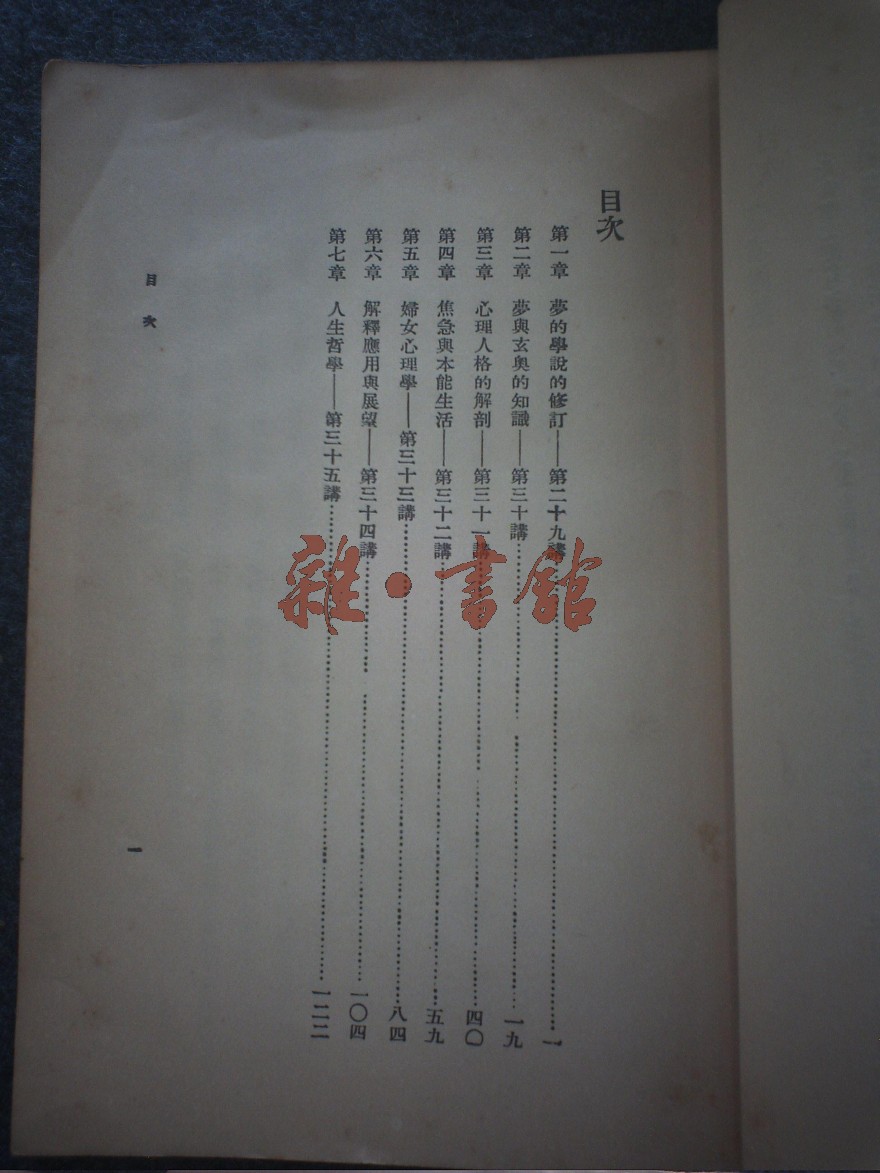 目次
第一章 夢的學說的修訂——第二十九講…………一
第二章 夢與玄奧的知識——第三十講…………一九
第三章 心理人格的解剖——第三十一講…………四〇
第四章 焦急與本能生活——第三十二講…………五九
第五章 婦女心理學——第三十三講…………八四
第六章 解釋應用與展望——第三十四講…………一〇四
第七章 人生哲學——第三十五講…………一二二
目次
一
雜·書館